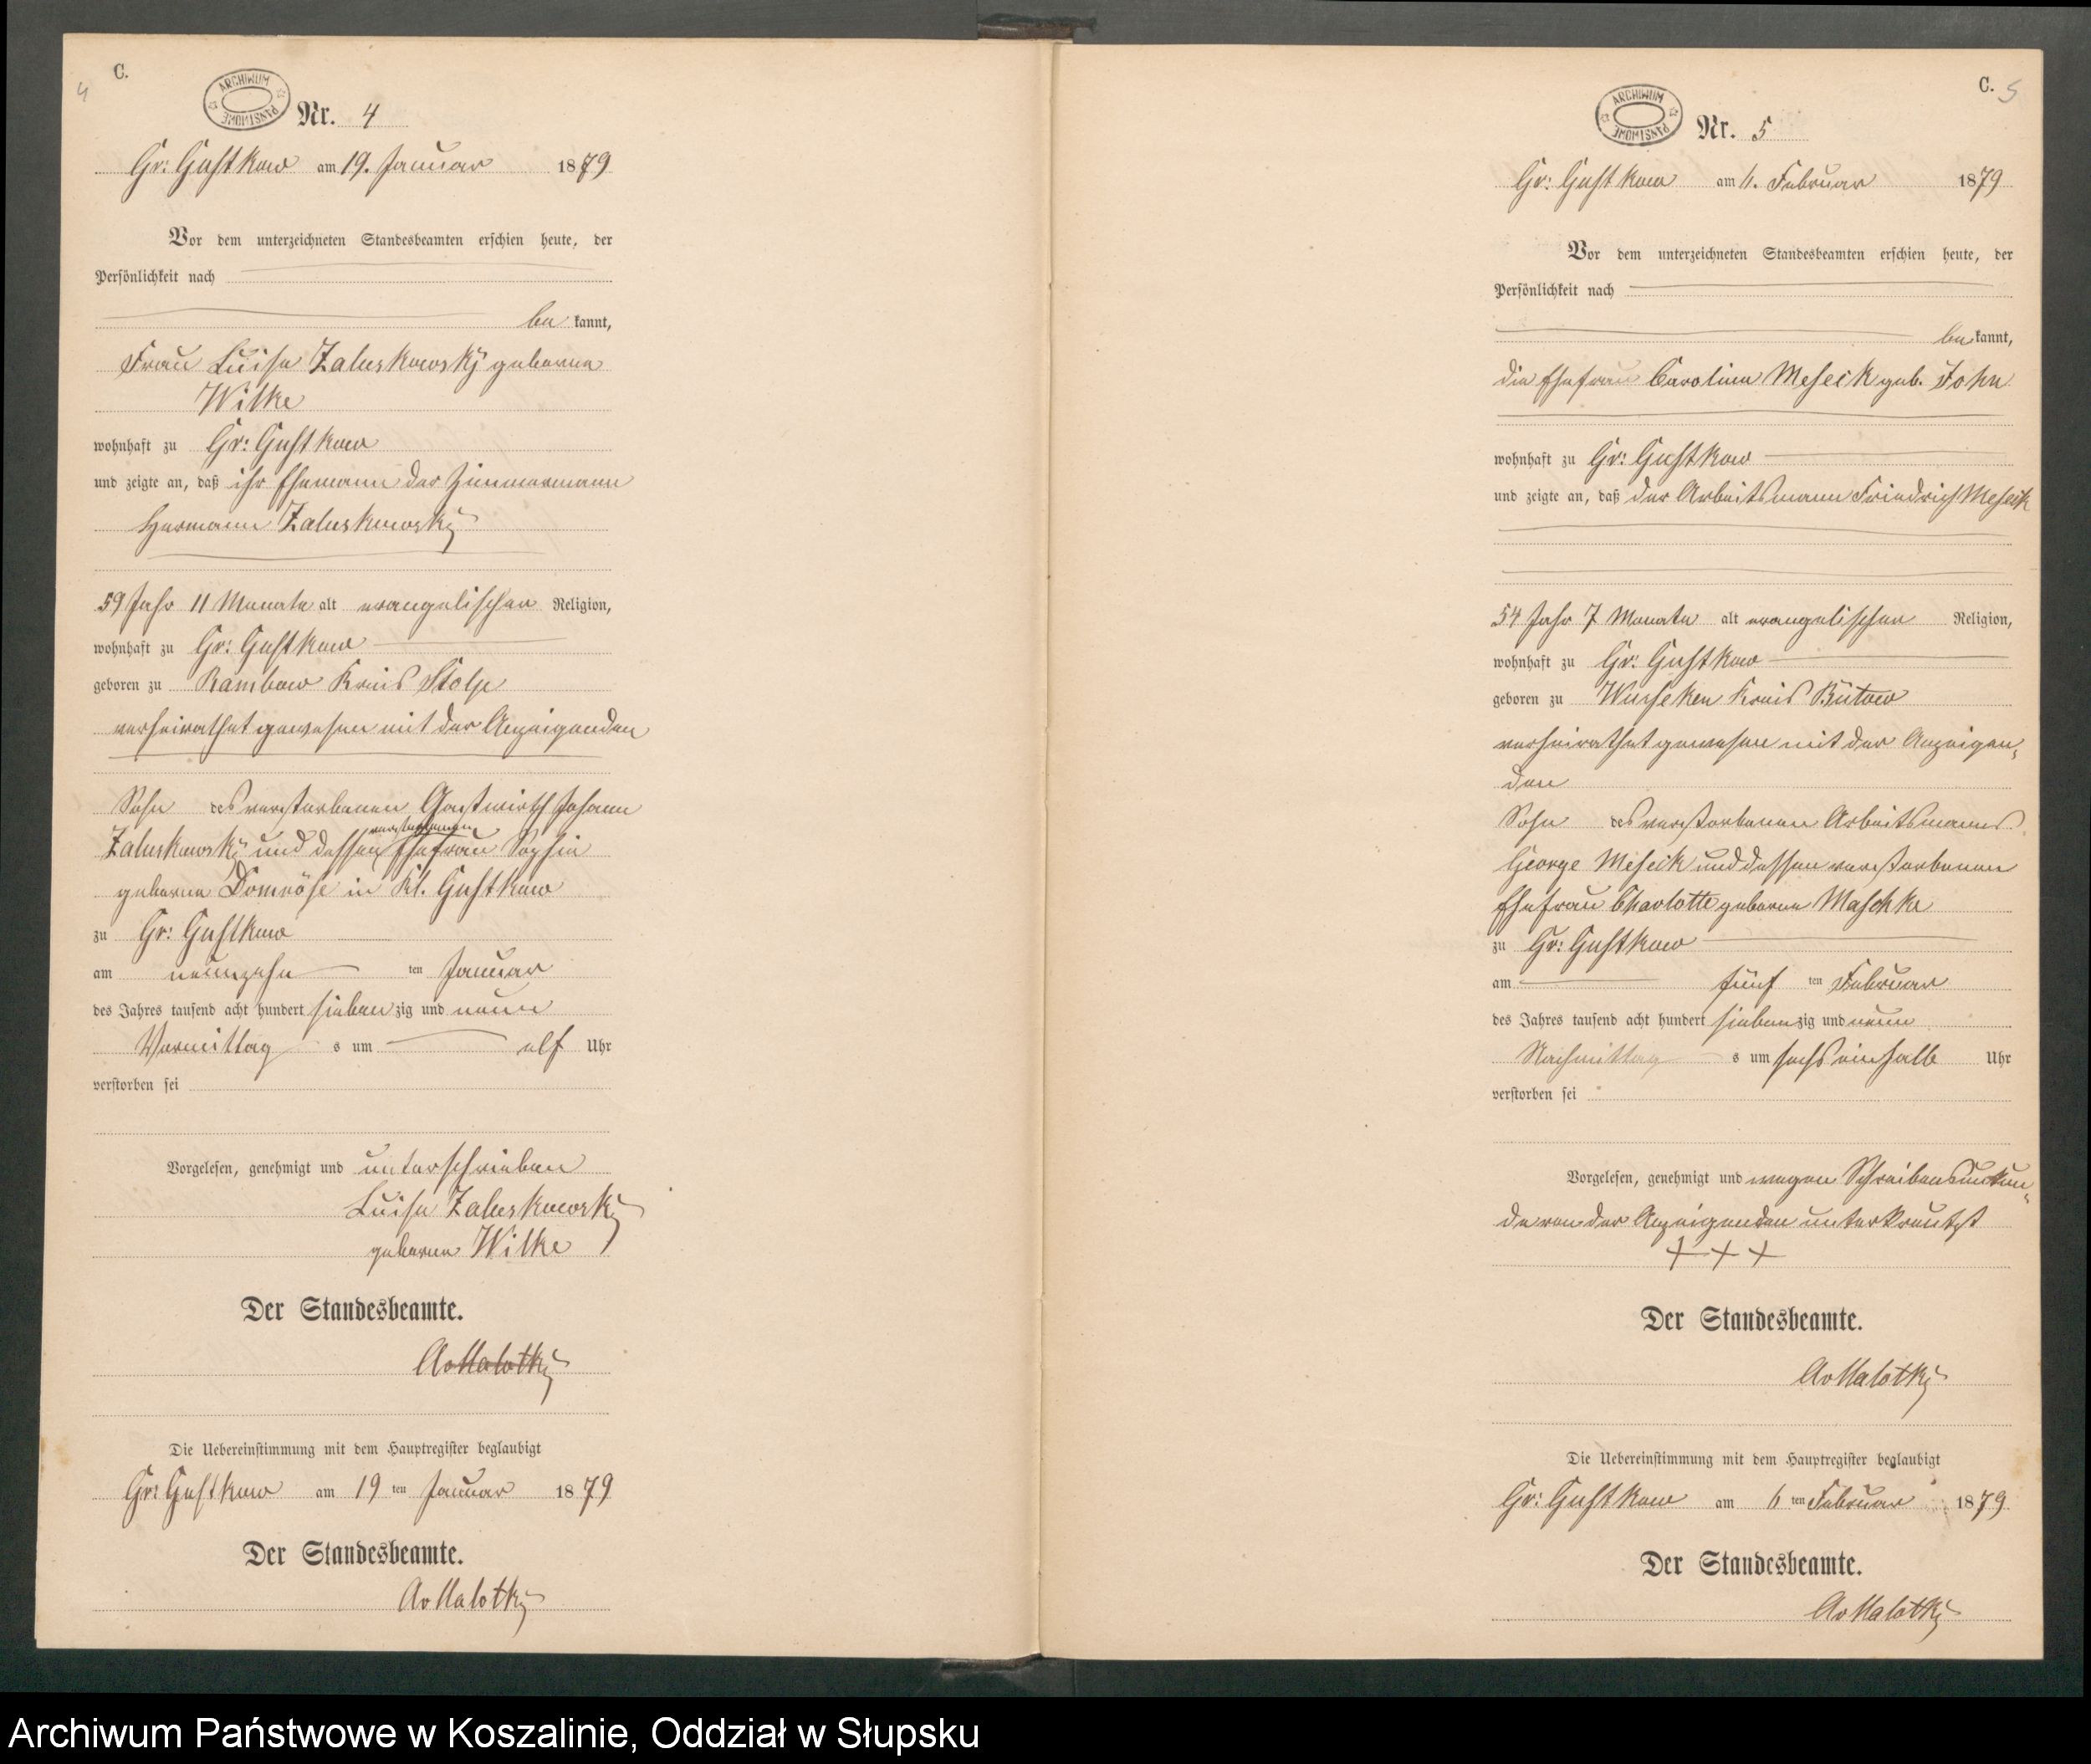 C.
4
ARCHIWUM PAŃSTWOWE
Nr. 4
Gr: Gustkow am 19. Januar 1879
Vor dem unterzeichneten Standesbeamten erschien heute, der
Persönlichkeit nach
be kannt,
Frau Luise Zaluskowsky geborne
Wilke
wohnhaft zu Gr: Gustkow
und zeigte an, daß ihr Ehemann der Zimmermann
Hermann Zaluskowsky
59 Jahr 11 Monate alt evangelischer Religion,
wohnhaft zu Gr: Gustkow
geboren zu Rambow Kreis Stolp
verheirathet gewesen mit der Anzeigenden
Sohn des verstorbenen Gastwirth Johann
verstorbenen
Zaluskowsky und dessen Ehefrau Sophie
geborne Domröse in Kl. Gustkow
zu Gr: Gustkow
am neunzehn ten Januar
des Jahres tausend acht hundert sieben zig und neun
Vormittag s um elf Uhr
verstorben sei
Vorgelesen, genehmigt und unterschrieben
Luise Zaluskowsky
geborne Wilke
Der Standesbeamte.
AvMalotky
Die Uebereinstimmung mit dem Hauptregister beglaubigt
Gr: Gustkow am 19 ten Januar 1879
Der Standesbeamte.
AvMalotky
C. 5
ARCHIWUM PAŃSTWOWE
Nr. 5
Gr: Gustkow am 6. Februar 1879
Vor dem unterzeichneten Standesbeamten erschien heute, der
Persönlichkeit nach
be kannt,
die Ehefrau Caroline Meseck geb. John
wohnhaft zu Gr: Gustkow
und zeigte an, daß der Arbeitsmann Friedrich Meseck
54 Jahr 7 Monate alt evangelischer Religion,
wohnhaft zu Gr: Gustkow
geboren zu Wusseken Kreis Bütow
verheirathet gewesen mit der Anzeigen-
den
Sohn des verstorbenen Arbeitsmanns
George Meseck und dessen verstorbenen
Ehefrau Charlotte geborne Maschke
zu Gr: Gustkow
am fünf ten Februar
des Jahres tausend acht hundert sieben zig und neun
Nachmittag s um sechs einhalb Uhr
verstorben sei
Vorgelesen, genehmigt und wegen Schreibensunkun-
de von der Anzeigenden unterkreutzt
+++
Der Standesbeamte.
AvMalotky
Die Uebereinstimmung mit dem Hauptregister beglaubigt
Gr: Gustkow am 6 ten Februar 1879
Der Standesbeamte.
AvMalotky
Archiwum Państwowe w Koszalinie, Oddział w Słupsku